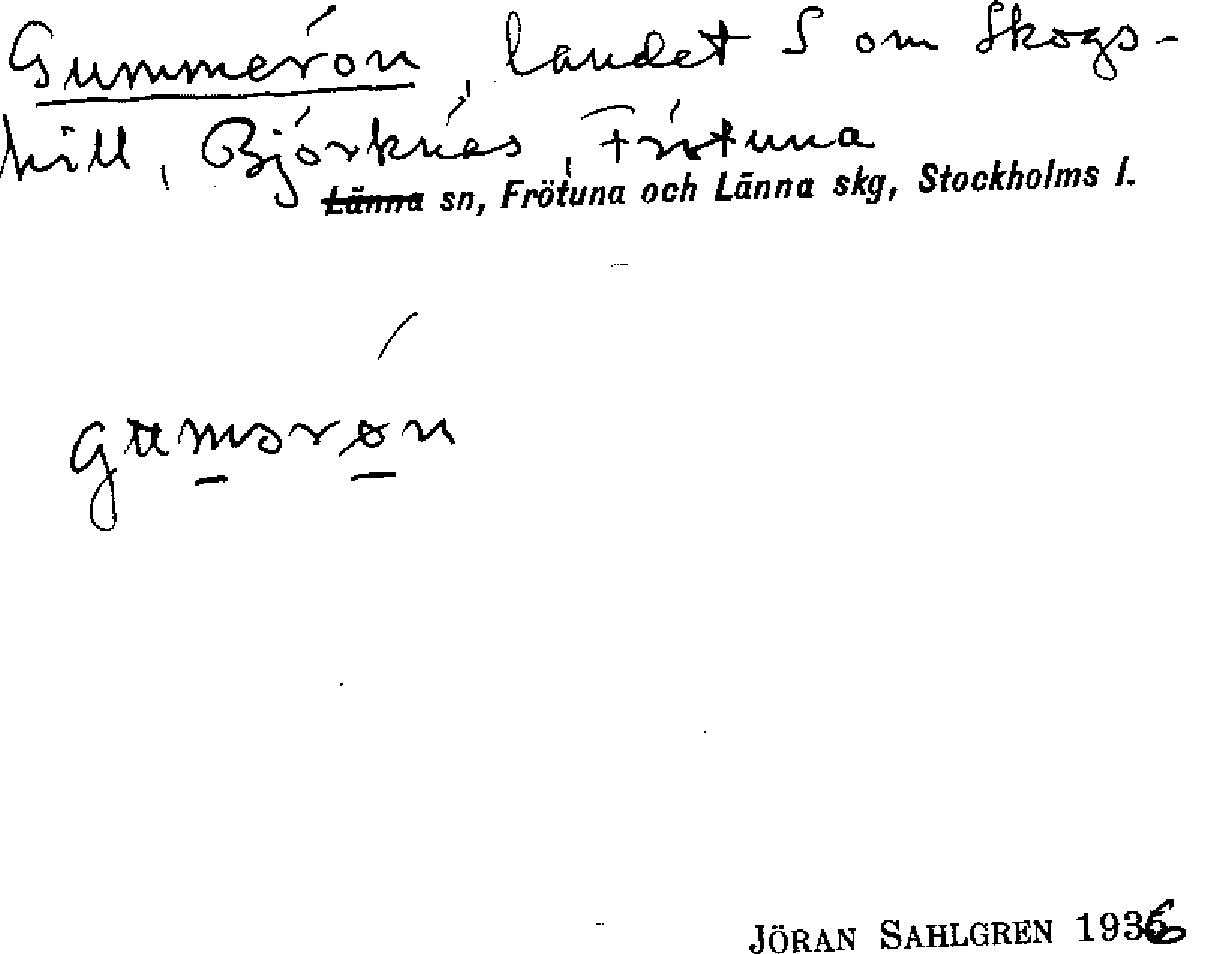 Gummerön, landet S om Skogs-
hill, Björknäs, Frötuna
Länna sn, Frötuna och Länna skg, Stockholms l.
JÖRAN SAHLGREN 1936